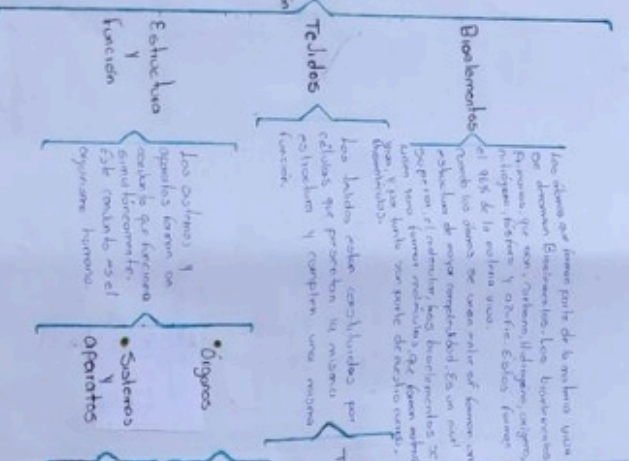 Bioelementos
Los átomos que forman parte de la materia viva
se denominan Bioelementos. Los bioelementos
Primarios que son, carbono, Hidrógeno, oxígeno,
nitrógeno, fósforo y azufre. Estos forman
el 96% de la materia viva.
cuando los átomos se unen entre sí forman una
estructura de mayor complejidad. Es un nivel
superior, el molecular, los bioelementos se
unen para formar moléculas que forman
y por tanto son parte de nuestro
Tejidos
Los tejidos están constituidos por
células que presentan la misma
estructura y cumplen una misma
función.
Estructura
y
función
Los sistemas y
aparatos forman un
conjunto que funciona
simultáneamente.
Este conjunto es el
organismo humano.
• Órganos
• Sistemas
y
aparatos
T